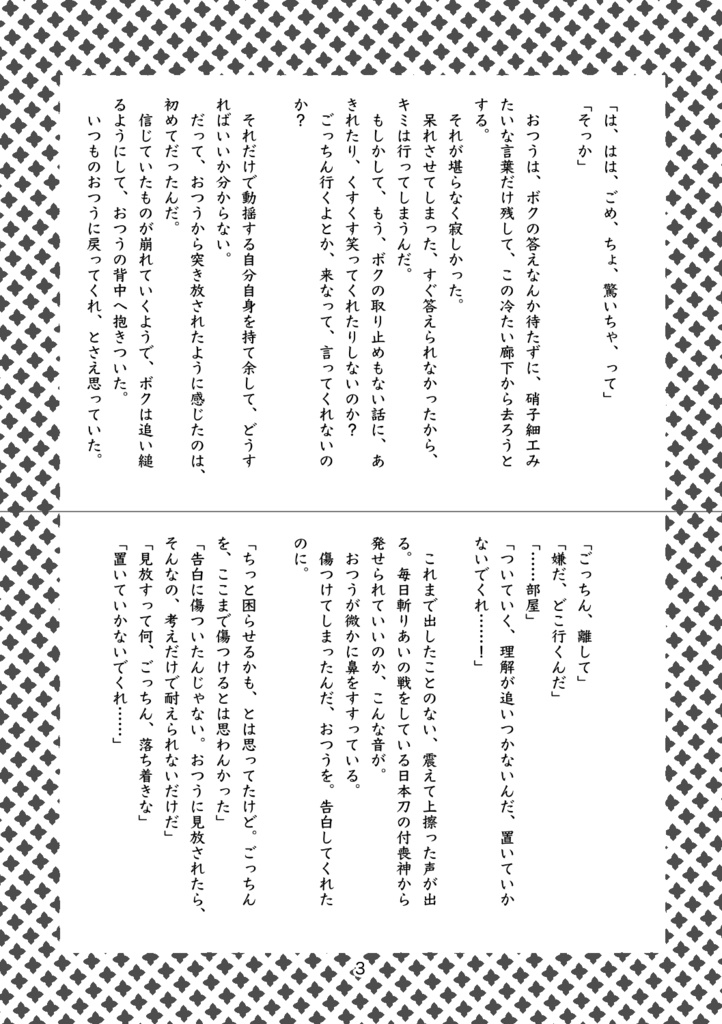 「は、はは、ごめ、ちょ、驚いちゃ、って」
「そっか」
おつうは、ボクの答えなんか待たずに、硝子細工み
たいな言葉だけ残して、この冷たい廊下から去ろうと
する。
それが堪らなく寂しかった。
呆れさせてしまった、すぐ答えられなかったから、
キミは行ってしまうんだ。
もしかして、もう、ボクの取り止めもない話に、あ
きれたり、くすくす笑ってくれたりしないのか？
ごっちん行くよとか、来なって、言ってくれないの
か？
それだけで動揺する自分自身を持て余して、どうす
ればいいか分からない。
だって、おつうから突き放されたように感じたのは、
初めてだったんだ。
信じていたものが崩れていくようで、ボクは追い縋
るようにして、おつうの背中へ抱きついた。
いつものおつうに戻ってくれ、とさえ思っていた。
「ごっちん、離して」
「嫌だ、どこ行くんだ」
「……部屋」
「ついていく、理解が追いつかないんだ、置いていか
ないでくれ……！」
これまで出したことのない、震えて上擦った声が出
る。毎日斬りあいの戦をしている日本刀の付喪神から
発せられていいのか、こんな音が。
おつうが微かに鼻をすすっている。
傷つけてしまったんだ、おつうを。告白してくれた
のに。
「ちっと困らせるかも、とは思ってたけど。ごっちん
を、ここまで傷つけるとは思わんかった」
「告白に傷ついたんじゃない。おつうに見放されたら、
そんなの、考えだけで耐えられないだけだ」
「見放すって何、ごっちん、落ち着きな」
「置いていかないでくれ……」
3